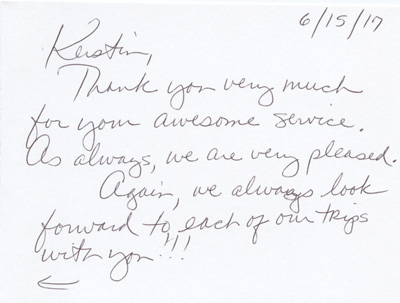 6/15/17
Kerstin,
Thank you very much
for your awesome service.
As always, we are very pleased.
Again, we always look
forward to each of our trips
with you!!!